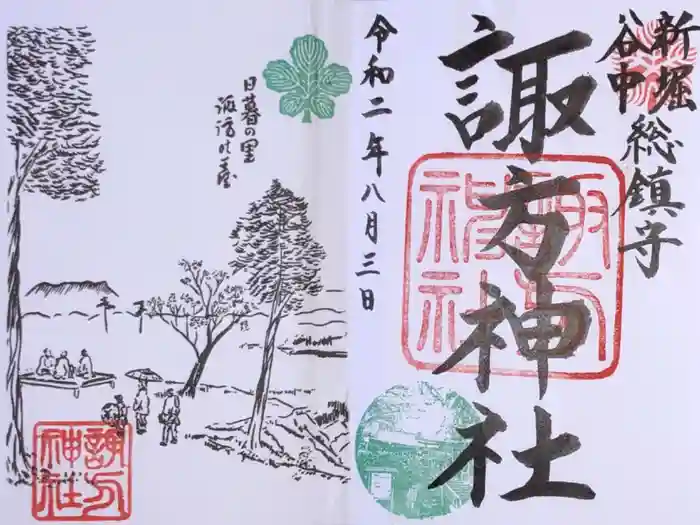 新堀
谷中
総鎮守
諏方神社
令和二年八月三日
諏方神社
日暮の里
諏訪の臺
諏方神社